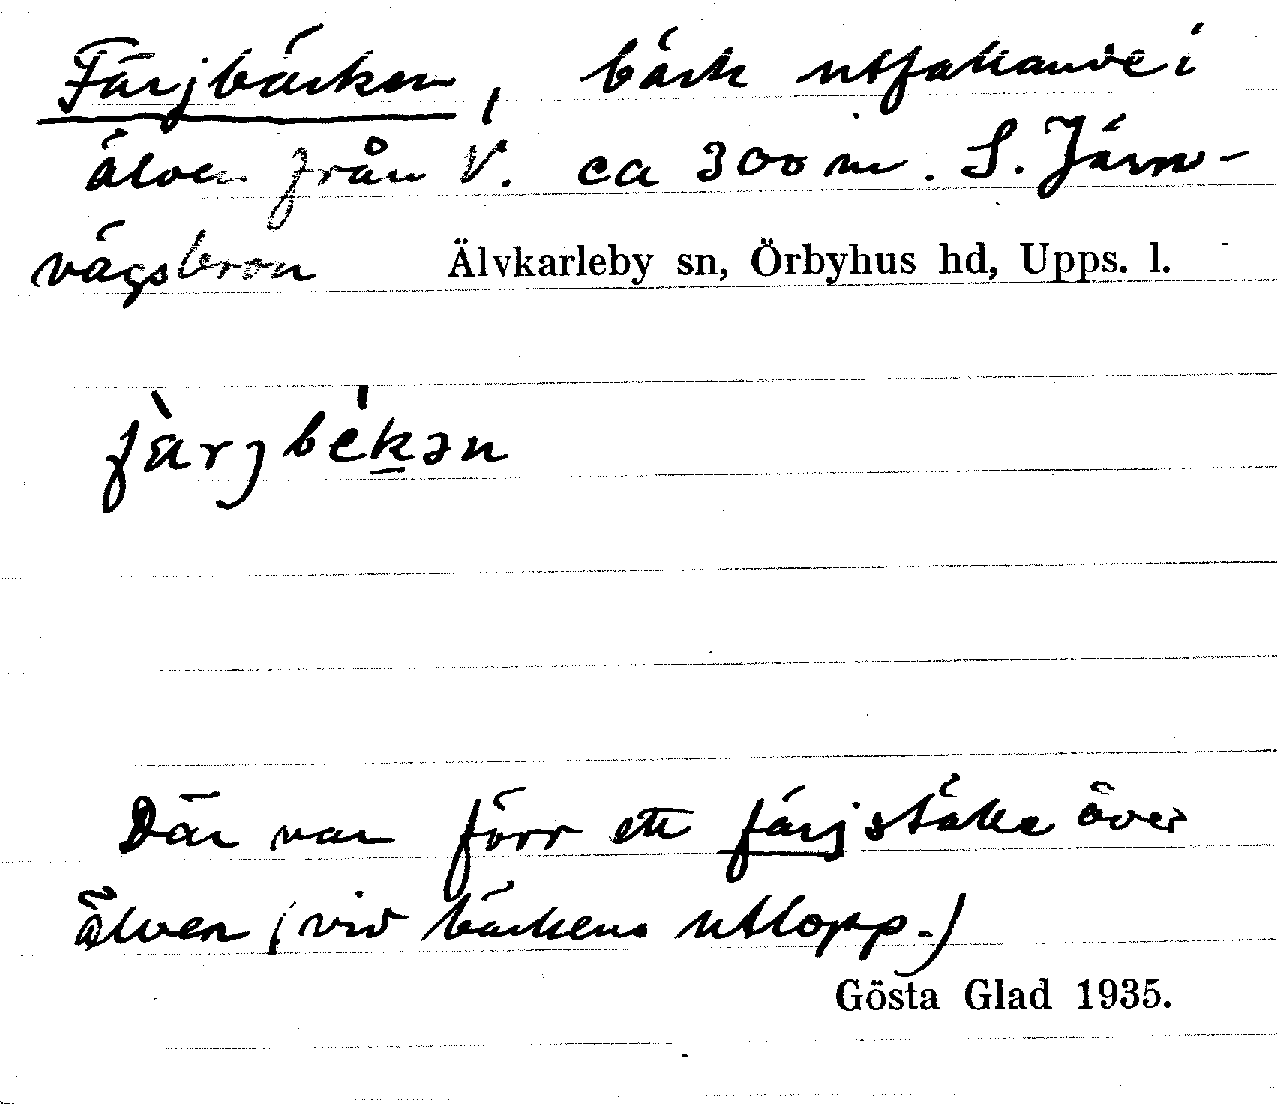 Färjbäcken, bäck utfallande i
älven från V. ca 300 m. S. Järn-
vägsbron Älvkarleby sn, Örbyhus hd, Upps. l.
fàrjbékən
Där var förr ett färjställe över
älven (vid bäckens utlopp.)
Gösta Glad 1935.